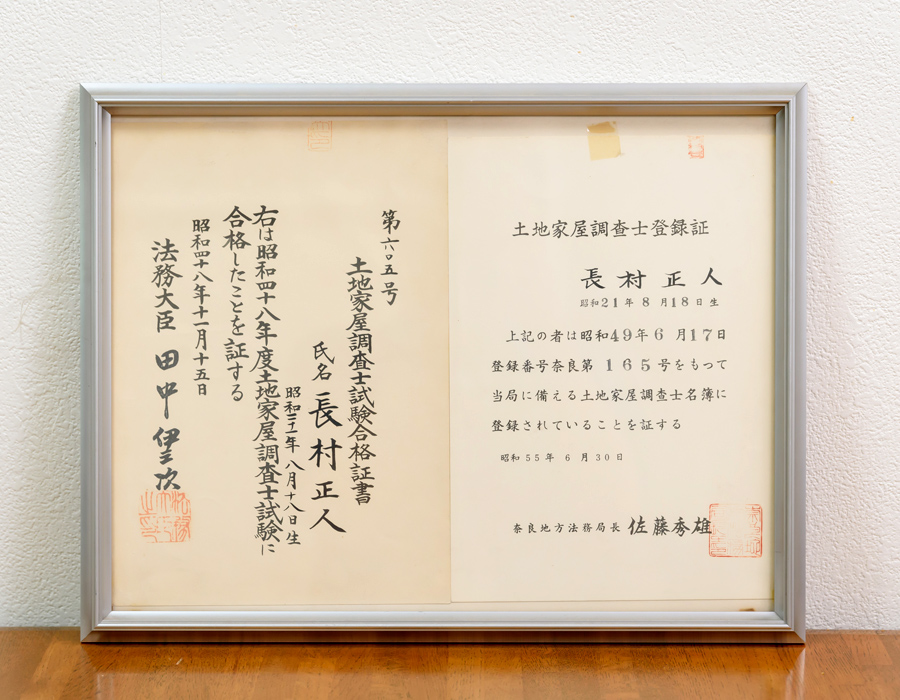 第六〇五号
土地家屋調査士試験合格証書
氏名 長村正人
昭和二十一年八月十八日生
右は昭和四十八年度土地家屋調査士試験に
合格したことを証する
昭和四十八年十一月十五日
法務大臣 田中伊三次
土地家屋調査士登録証
長村正人
昭和21年8月18日生
上記の者は昭和49年6月17日
登録番号奈良第165号をもつて
当局に備える土地家屋調査士名簿に
登録されていることを証する
昭和55年6月30日
奈良地方法務局長 佐藤秀雄